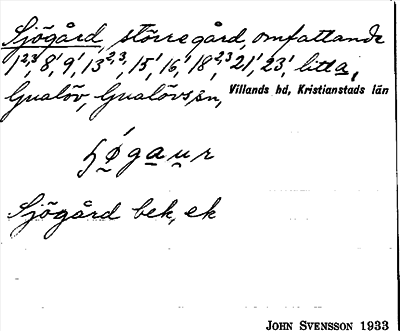 Sjögård, större gård, omfattande
1²,³, 8¹, 9¹, 13²,³, 15¹, 16¹, 18²,³ 21¹, 23¹, litt a,
Gualöv, Gualövs sn, Villands hd, Kristianstads län
Sjögård bek, ek
JOHN SVENSSON 1933